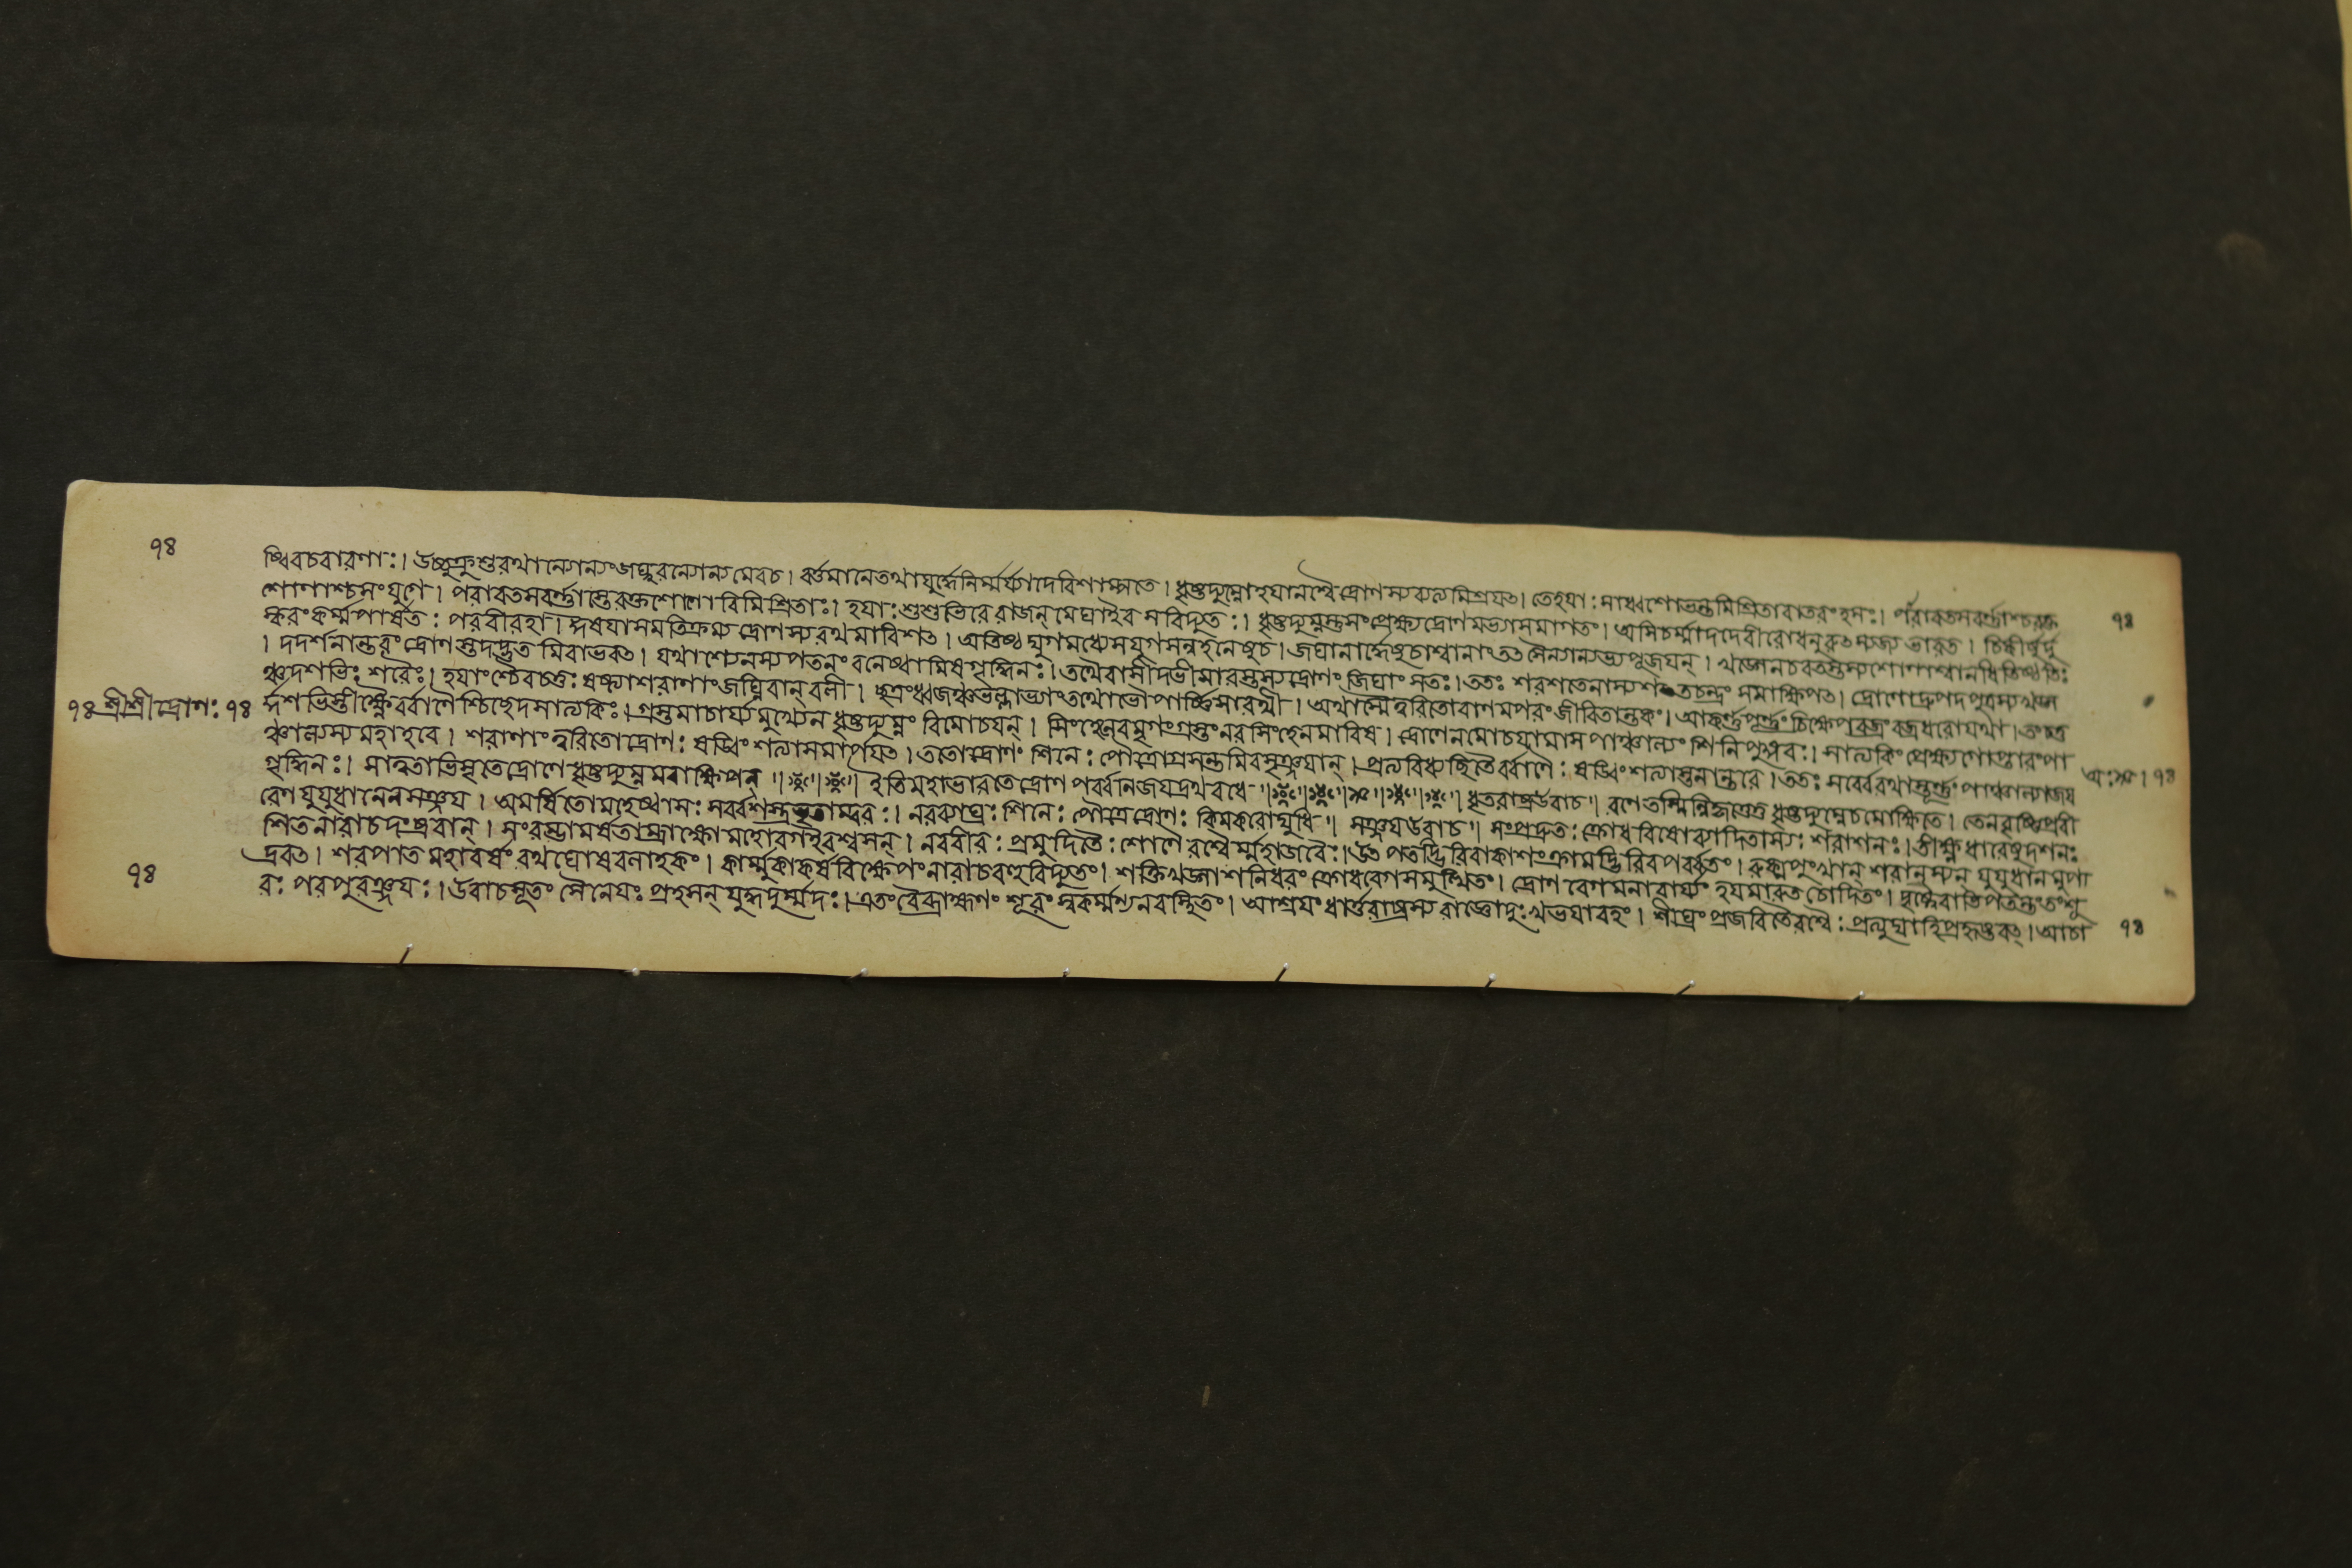 ৭৪
ষ্বিবচবারণাঃ। উচ্চুক্রুশুরথান্যোন্যংজঘ্নুরন্যোন্যমেবচ। বর্ত্তমানেতথাযুদ্ধেনির্ম্মর্য্যাদেবিশাম্পতে। ধৃষ্টদ্যুম্নোহযানশ্বৈর্দ্রোণস্যব্যত্যমিশ্রয়ৎ। তেহযাঃসাধ্বশোভন্তমিশ্রিতাবাতরংহসঃ। পারাবতসবর্ণ্ণাশ্চরক্ত
শোণাশ্চসংযুগে। পরাবতসবর্ণ্ণাস্তেরক্তশোণাবিমিশ্রিতাঃ। হযাঃশুশুভিরেরাজন্ মেঘাইব সবিদ্যুতঃ। ধৃষ্টদ্যুম্নস্তুসংপ্রেক্ষ্যদ্রোণমভ্যাসমাগতং। অসিচর্ম্মাদদেবীরোধনুরুৎসৃজ্য ভারত। চিকীর্ষুর্দু
৭৪
ষ্করংকর্ম্মপার্ষতঃ পরবীরহা। ঈষযাসমতিক্রম্য দ্রোণস্যরথমাবিশৎ। অতিষ্ঠদ্যুগমধ্যেসযুগসন্নহনেষুচ। জঘানার্দ্ধেষুচাশ্বানাং তৎসৈন্যান্যভ্যপূজয়ন্। খড়্গেনচরতস্তস্যশোণাশ্বানধিতিষ্ঠতঃ
। দদর্শনান্তরংদ্রোণস্তদদ্ভুতমিবাভবৎ। যথাশ্যেনস্যপতনংবনেষ্বামিষগৃদ্ধিনঃ। তথৈবাসীদভীসারস্তস্যদ্রোণংজিঘাংসতঃ। ততঃ শরশতেনাস্যশতচন্দ্রং সমাক্ষিপৎ। দ্রোণোদ্রুপদপুত্রস্যখড়্গ
ঞ্চদশভিঃ শরৈঃ। হযাংশ্চৈবচতুঃষষ্ট্যাশরাণাংজঘ্নিবান্ বলী। ছত্রংধ্বজঞ্চভল্লাভ্যাংতথোভৌপার্ষ্ণিসারথী। অথাস্মৈত্বরিতোবাণমপরংজীবিতান্তকং। আকর্ণ্ণপূর্ণ্ণংচিক্ষেপবজ্রং বজ্রধরোযথা। তংচতু
৭৪ শ্রীশ্রীদ্রোণঃ ৭৪
র্দ্দশভিস্তীক্ষ্ণৈর্ব্বাণৈশ্চিচ্ছেদসাত্যকিঃ। গ্রস্তমাচার্য্যমুখ্যেন ধৃষ্টদ্যুম্নং বিমোচয়ন্। সিংহেনেবমৃগংগ্রস্তংনরসিংহেনমারিষ। দ্রোণেনমোচয়ামাস পাঞ্চাল্যং শিনিপুঙ্গবঃ। সাত্যকিং প্রেক্ষ্যগোপ্তারংপা
ঞ্চাল্যস্যমহাহবে। শরাণাংত্বরিতোদ্রোণঃ ষড়্বিংশত্যাসমার্পয়ৎ। ততোদ্রোণং শিনেঃ পৌত্রোগ্রসন্তমিবসৃঞ্জয়ান্। প্রত্যবিধ্যচ্ছিতৈর্ব্বাণৈঃ ষড়্বিংশত্যাস্তনান্তরে। ততঃ সর্ব্বেরথাস্তূর্ণ্ণং পাঞ্চাল্যাজয়
অঃ। ৭৪
গৃদ্ধিনঃ। সাত্বতাভিসৃতেদ্রোণেধৃষ্টদ্যুম্নমবাক্ষিপন্॥ ইতিমহাভারতেদ্রোণ পর্ব্বনিজয়দ্রথবধে॥ ধৃতরাষ্ট্রউবাচ॥ বাণেতস্মিন্নিকৃত্তেতু ধৃষ্টদ্যুম্নেচমোক্ষিতে। তেনবৃষ্ণিপ্রবী
রেণযুযুধানেনসঞ্জয়। অমর্ষিতোমহেষ্বাসঃ সর্ব্বশস্ত্রভৃতাম্বরঃ। নরব্যাঘ্রঃ শিনেঃ পৌত্রেদ্রোণঃ কিমকরোদ্যুধি॥ সঞ্জয়উবাচ॥ সংপ্রদ্রুতঃ ক্রোধবিষোব্যাদিতাস্যঃ শরাশনঃ। তীক্ষ্ণধারেষুদশনঃ
শিতনারাচদংষ্ট্রবান্। সংরম্ভামর্ষতাম্রাক্ষোমহোরগইবশ্বসন্। নরবীরঃ প্রমুদিতৈঃ শোণৈরশ্বৈর্ম্মহাজবৈঃ। উৎপতদ্ভিরিবাকাশংক্রামদ্ভিরিবপর্ব্বতং। রুক্মপুংখান্ শরানস্যন্ যুযুধানমুপা
দ্রবৎ। শরপাতমহাবর্ষং রথঘোষবলাহকং। কার্ম্মুকাকর্ষবিক্ষেপংনারাচবহুবিদ্যুতং। শক্তিখড়্গাশনিধরং ক্রোধবেগসমুত্থিতং। দ্রোণমেঘমনাবার্য্যং হযমারুতচোদিতং। দৃষ্ট্বৈবাভিপতন্তংতংশূ
৭৪
রঃ পরপুরঞ্জয়ঃ। উবাচসূতং সৈনেয়ঃ প্রহসন্ যুদ্ধদুর্ম্মদঃ। এতংবৈব্রাহ্মণং শূরং স্বকর্ম্মণ্যনবস্থিতং। আশ্রয়ং ধার্ত্তরাষ্ট্রস্য রাজ্ঞোদুঃখভয়াবহং। শীঘ্রং প্রজবিতৈরশ্বৈঃ প্রত্যুদ্যাহিপ্রহৃষ্টবৎ। আচা
৭৪